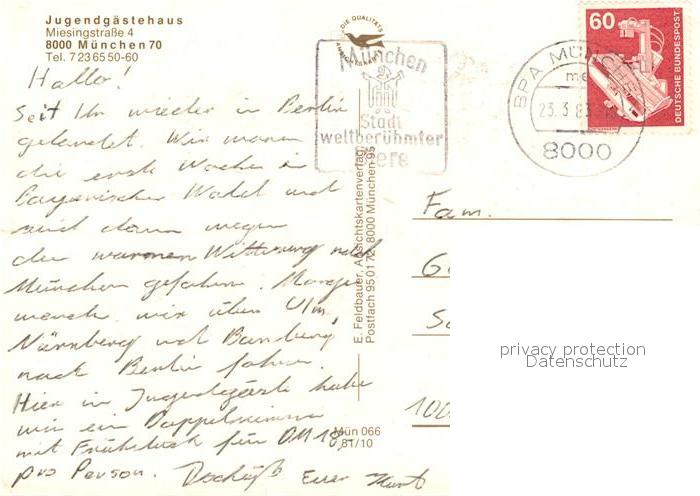 Jugendgästehaus
Miesingstraße 4
8000 München 70
Tel. 7 23 65 50-60
Hallo!
Seit Ihr wieder in Berlin
gelandet. Wir waren
die erste Woche im
Bayerischer Wald und
sind dann wegen
der warmen Witterung nach
München gefahren. Morgen
werden wir über Ulm,
Nürnberg und Bamberg
nach Berlin fahren.
Hier in Jugendgäste habe
wir ein Doppelzimmer
mit Frühstück für DM 18,
pro Person. Tschüß Euer Kurt
DIE QUALITÄTS
ANSICHTSKARTE
München
Stadt
weltberühmter
iere
60
DEUTSCHE BUNDESPOST
BPA MÜNCHEN
me
23.3.83
8000
E. Feldbauer, Ansichtskartenverlag,
Postfach 95 01 72, 8000 München 95
Mün 066
81/10
Fam.
G
S
100
privacy protection
Datenschutz